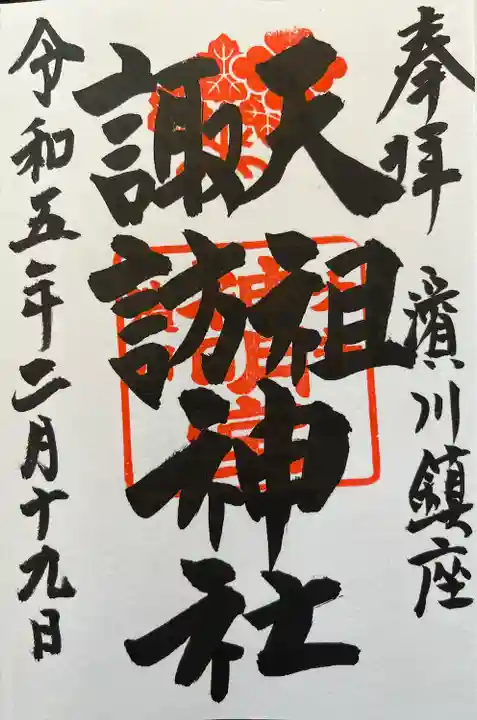 奉拝 濱川鎮座
天祖
諏訪
神社
令和五年二月十九日